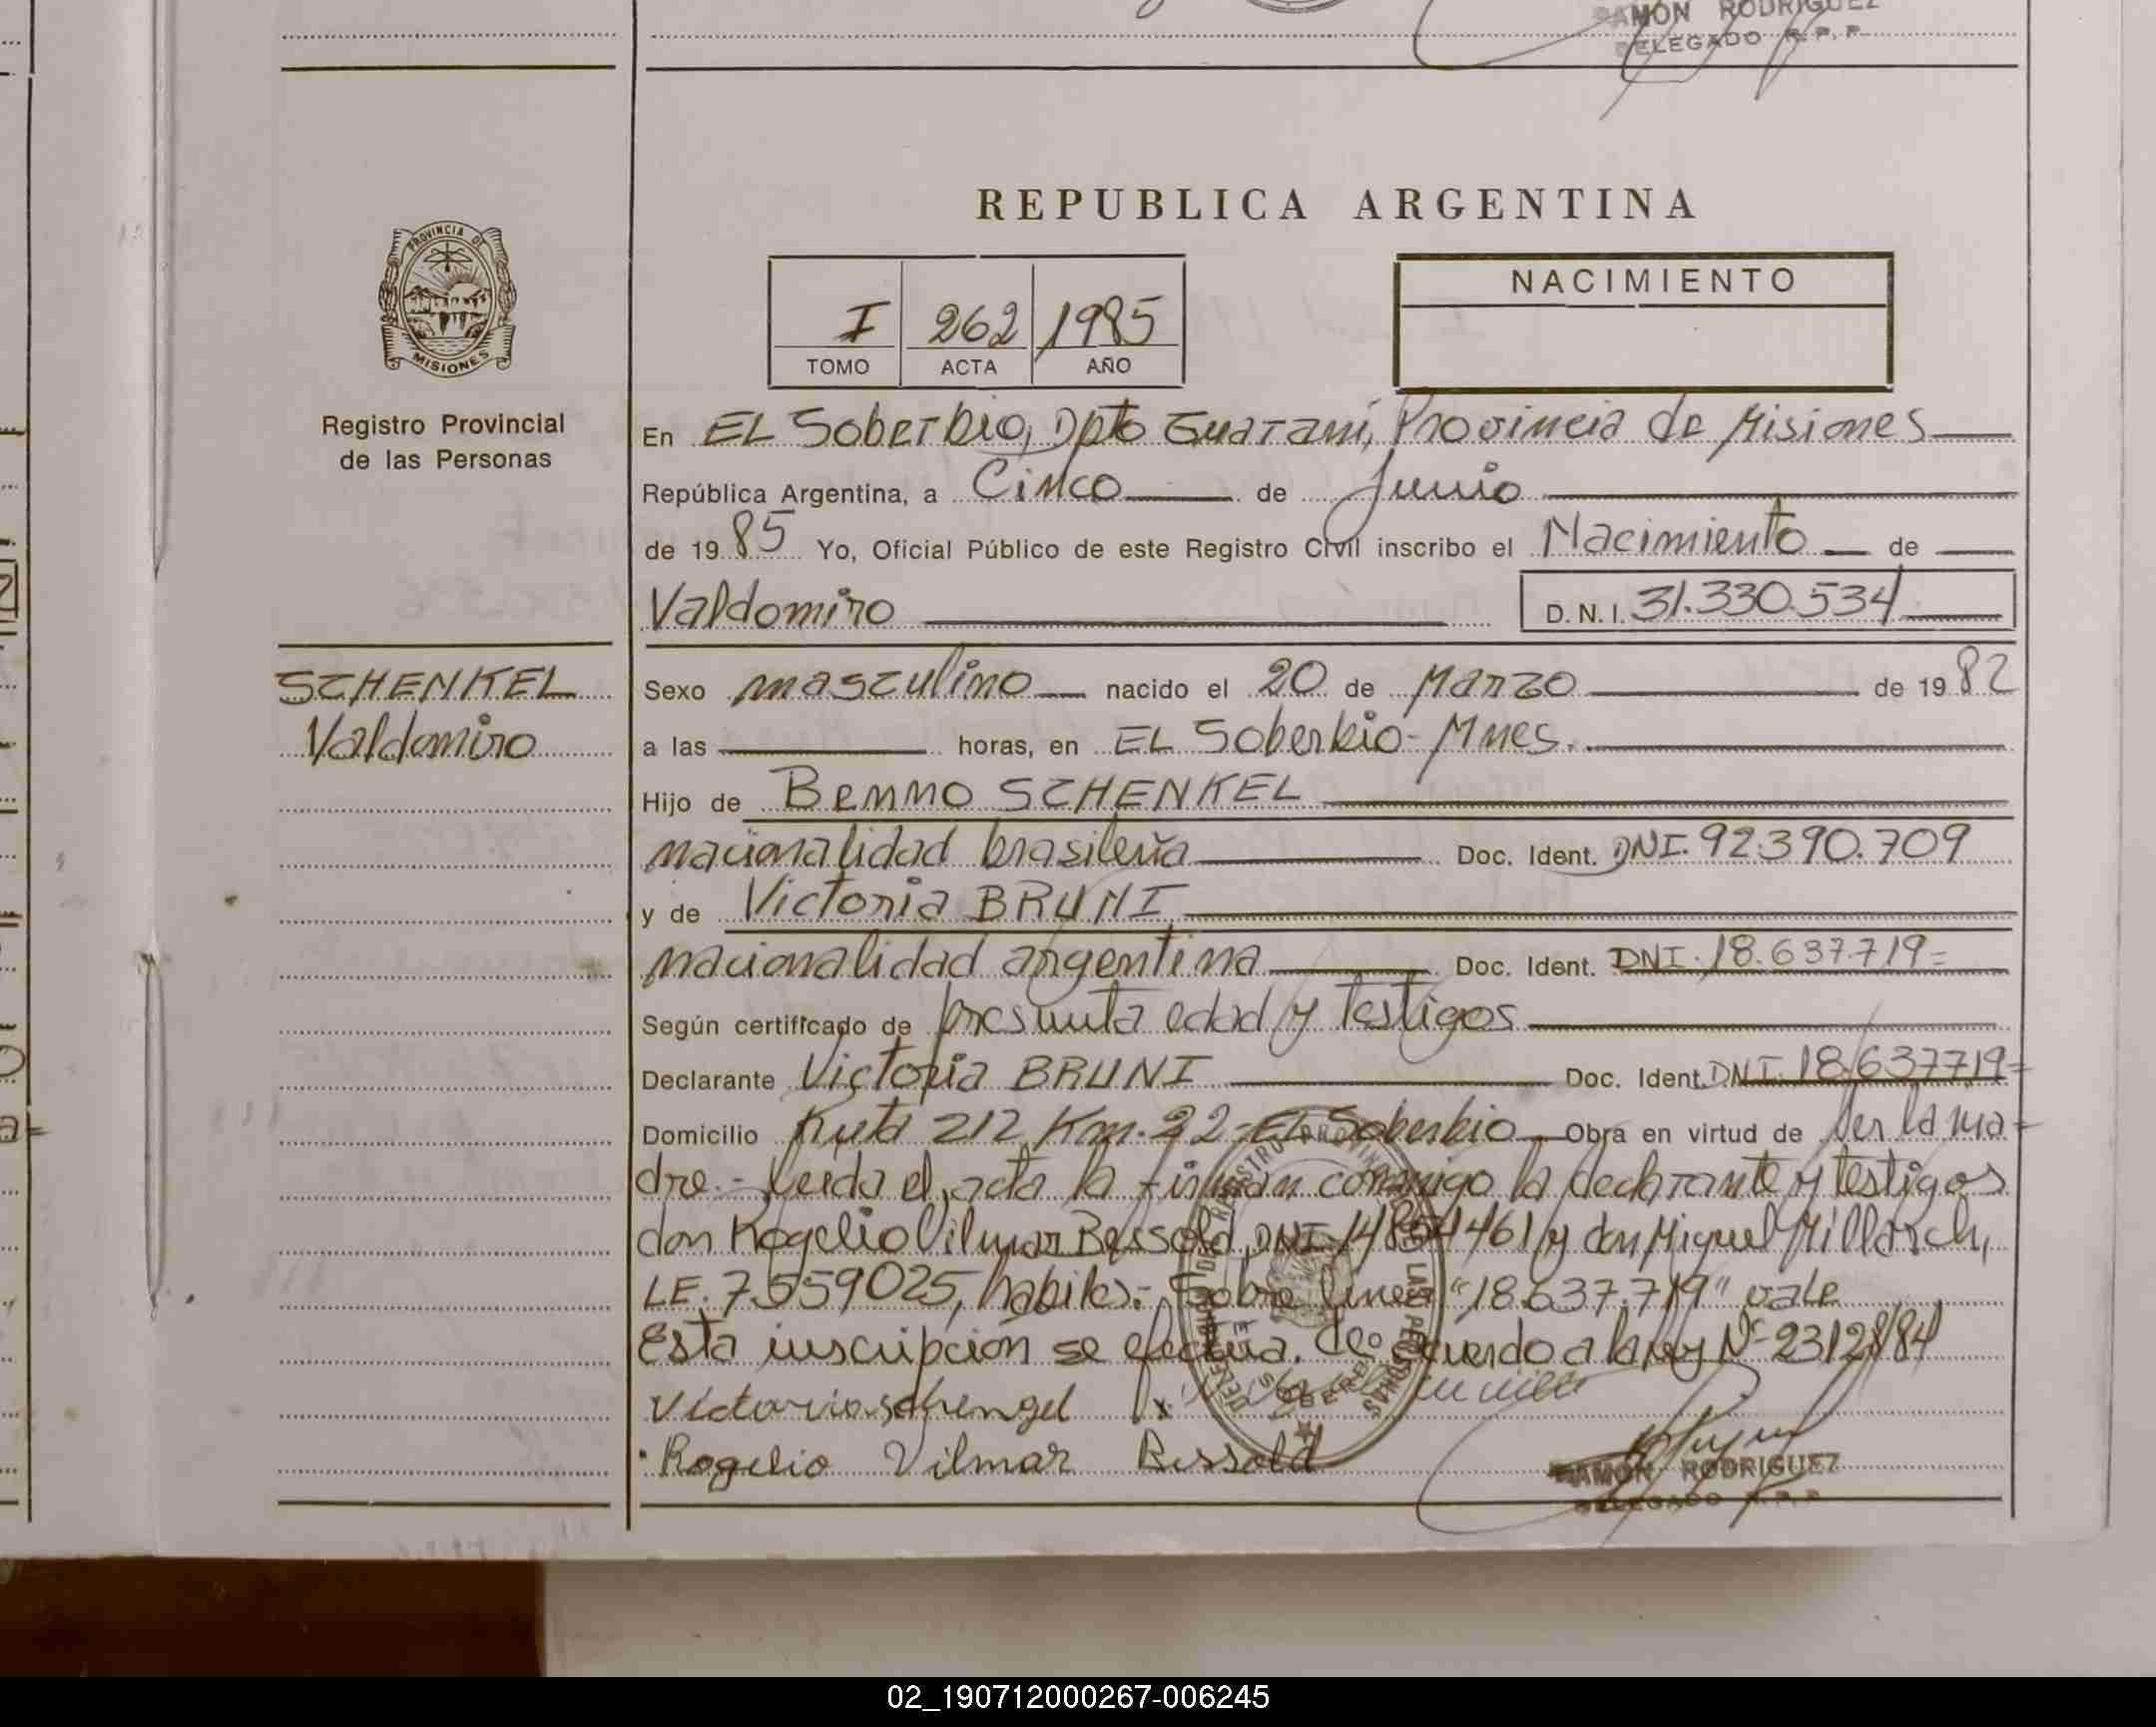 RAMON RODRIGUEZ
DELEGADO R.P.P.
REPUBLICA ARGENTINA
PROVINCIA DE
MISIONES
Registro Provincial
de las Personas
I 262 1985
TOMO ACTA AÑO
NACIMIENTO
En EL Soberbio, Dpto Guaraní, Provincia de Misiones
República Argentina, a Cinco de Junio
de 1985 Yo, Oficial Público de este Registro Civil inscribo el Nacimiento de
Valdomiro D.N.I. 31.330.534
SCHENKEL
Valdomiro
Sexo masculino nacido el 20 de Marzo de 1982
a las horas, en EL Soberbio- Mnes.
Hijo de Benno SCHENKEL
nacionalidad brasileña Doc. Ident. DNI. 92.390.709
y de Victoria BRUNI
nacionalidad argentina Doc. Ident. DNI. 18.637.719=
Según certificado de presunta edad y testigos
Declarante Victoria BRUNI Doc. Ident. DNI. 18.637719=
Domicilio Ruta 212 Km. 22- EL Soberbio Obra en virtud de Ser la ma=
dre.- Leida el acta la firman conmigo la declarante y testigos
don Rogelio Vilmar Bessold, DNI 14854461 y don Miguel Millarch,
LE. 7.559025, habiles.- Sobre linea "18.637.719" vale
Esta inscripcion se efectua. de acuerdo a la ley Nº 23128/84
Victoria schengel
Rogelio Vilmar Bessold
RAMON RODRIGUEZ
DELEGADO R.P.P.
02_190712000267-006245